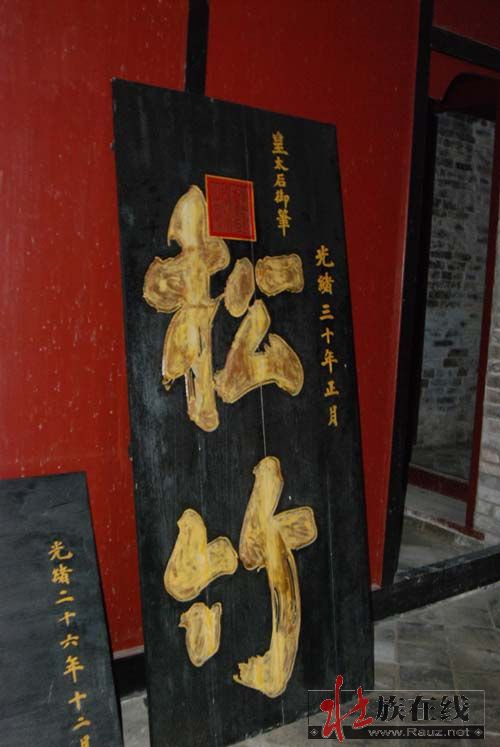 光緒三十年正月
皇太后御筆
松竹
光緒二十六年十二月
壮族在线
www.Rauz.net